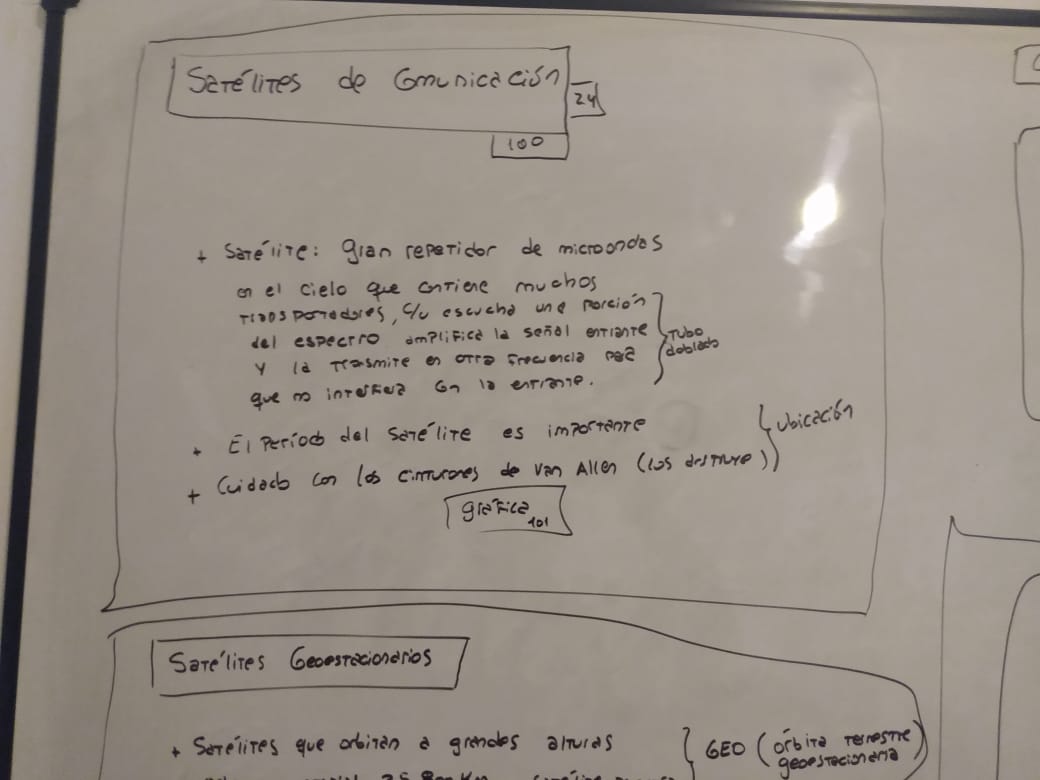 Satélites de Comunicación
24
100
+ Satélite: gran repetidor de microondas
en el cielo que contiene muchos
transportadores, c/u escucha una porción
del espectro amplifica la señal entrante
y la transmite en otra frecuencia para
que no interfiera con la entrante.
Tubo
doblado
+ El período del Satélite es importante
+ Cuidado con los cinturones de Van Allen (los destruye)
Ubicación
gráfica 101
Satélites Geoestacionarios
+ Satélites que orbitan a grandes alturas
GEO (órbita terrestre
geoestacionaria)